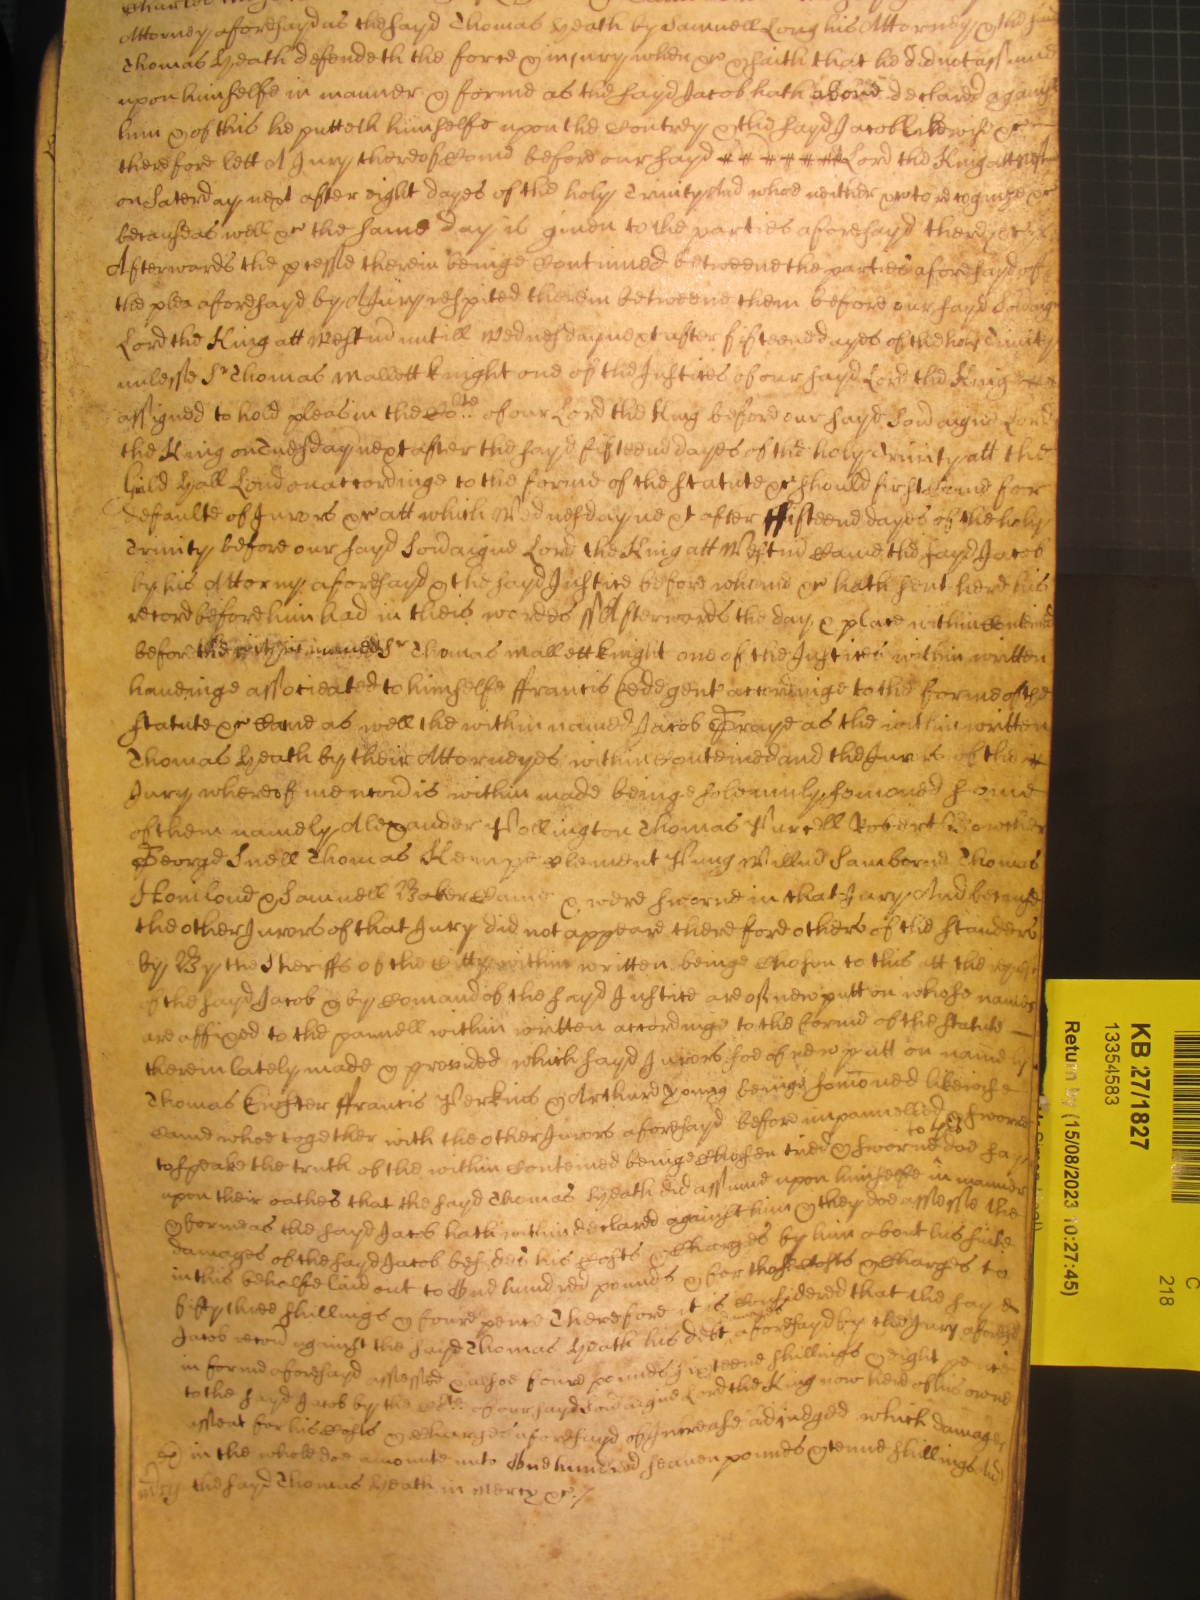 Attorney aforesayd as the sayd Thomas Heath by Samuell Long his Attorney & the sayd
Thomas Heath defendeth the force & injury when &c & saith that he did not assume
upon himselfe in manner & forme as the sayd Jacob hath above declared against
him & of this he putteth himselfe upon the Contrey & the sayd Jacob likewise &c
therefore lett A Jury thereof Come before our sayd Lord the King att Westm
on Saterday next after eight dayes of the holy Trinity And whoe neither &c to recognize &c
because as well &c the same day is given to the parties aforesayd there &c
Afterwards the pcesse therein beinge Continued betweene the parties aforesayd of
the plea aforesayd by A Jury respited therein betweene them before our sayd Soveraigne
Lord the King att Westm untill Wednesday next after fifteene dayes of the holy Trinity
unlesse Sr Thomas Mallett knight one of the Justices of our sayd Lord the King
assigned to hold pleas in the Cote of our Lord the King before our sayd Sovaigne Lord
the King on Tuesday next after the sayd fifteene dayes of the holy Trinity att the
Guild Hall London accordinge to the forme of the statute &c should first Come for
defaulte of Jurors &c att which Wednesday next after fifteene dayes of the holy
Trinity before our sayd Sovaigne Lord the King att Westm Came the sayd Jacob
by his Attorny aforesayd & the sayd Justice before whome &c hath sent here his
record before him had in theis wordes ss Afterwards the day & place within Conteined
before the within named Sr Thomas Mallett knight one of the Justices within written
haveinge associeated to himselfe ffrancis gent accordinge to the forme of the
statute &c Came as well the within named Jacob as the within written
Thomas Heath by their Attorneyes within Conteined and the Jurors of the
Jury whereof mencon is within made beinge solemnly somoned some
of them namely Alexander Pollington Thomas Purcell Robert
George Snell Thomas Kempe Clement Pung Willm Samborne Thomas
& Samuell Baker Came & were sworne in that Jury And because
the other Jurors of that Jury did not appeare therefore others of the standers
by By the Sheriffs of the Citty within written beinge Chosen to this att the request
of the sayd Jacob & by Comand of the sayd Justice are of new putt on whose names
are affixed to the pannell within written accordinge to the forme of the statute
therein lately made & provided which sayd Jurors soe of new putt on namely
Thomas ffrancis Perkins & Arthure Young beinge somoned likewise
Came whoe together with the other Jurors aforesayd before impannelled & sworne
to speake the truth of the within Conteined beinge Chosen tried & sworne to this doe say
upon their oathes that the sayd Thomas Heath did assume upon himselfe in manner
& forme as the sayd Jacob hath within declared against him & they doe assesse the
damages of the sayd Jacob besides his Costs & Charges by him about his suite
in this behalfe laid out to One hundred pounds & for those Costs & Charges to
fifty three shillings & foure pence Therefore it is Considered that the sayd
Jacob recover against the sayd Thomas Heath his damages aforesayd by the Jury aforesd
in forme aforesayd assessed & alsoe foure pounds sixteene shillings & eight pence
to the sayd Jacob by the Cote of our sayd Sovaigne Lord the King now here of his owne
assent for his Costs & Charges aforesayd of Increase adjudged which damages
in the whole doe amounte unto One hundred seaven pounds & tenne shillings And
the sayd Thomas Heath in Mercy &c /
KB 27/1827
13354583
Return by (15/08/2023 10:27:45)
C
218